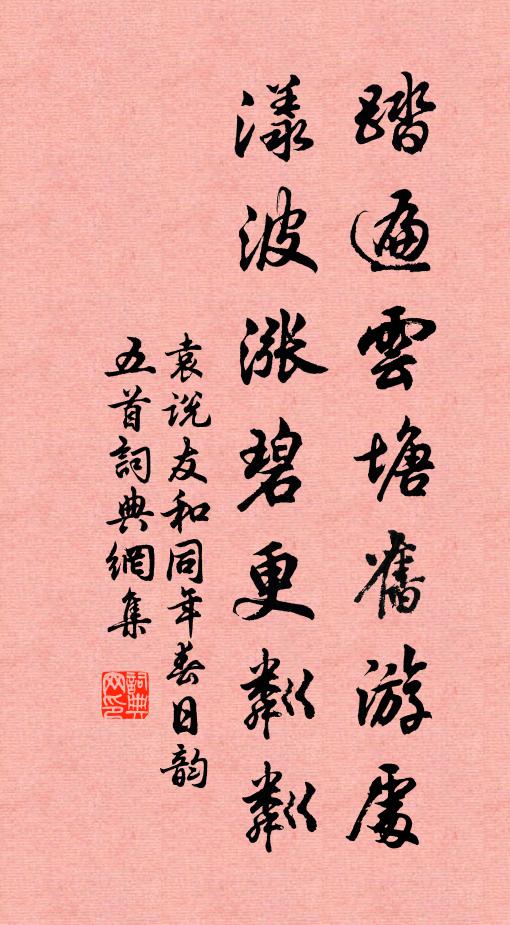 踏遍雲塘舊游處
漾波漲碧更粼粼
袁说友和同年春日韵
五首詞典網集
詞典網印